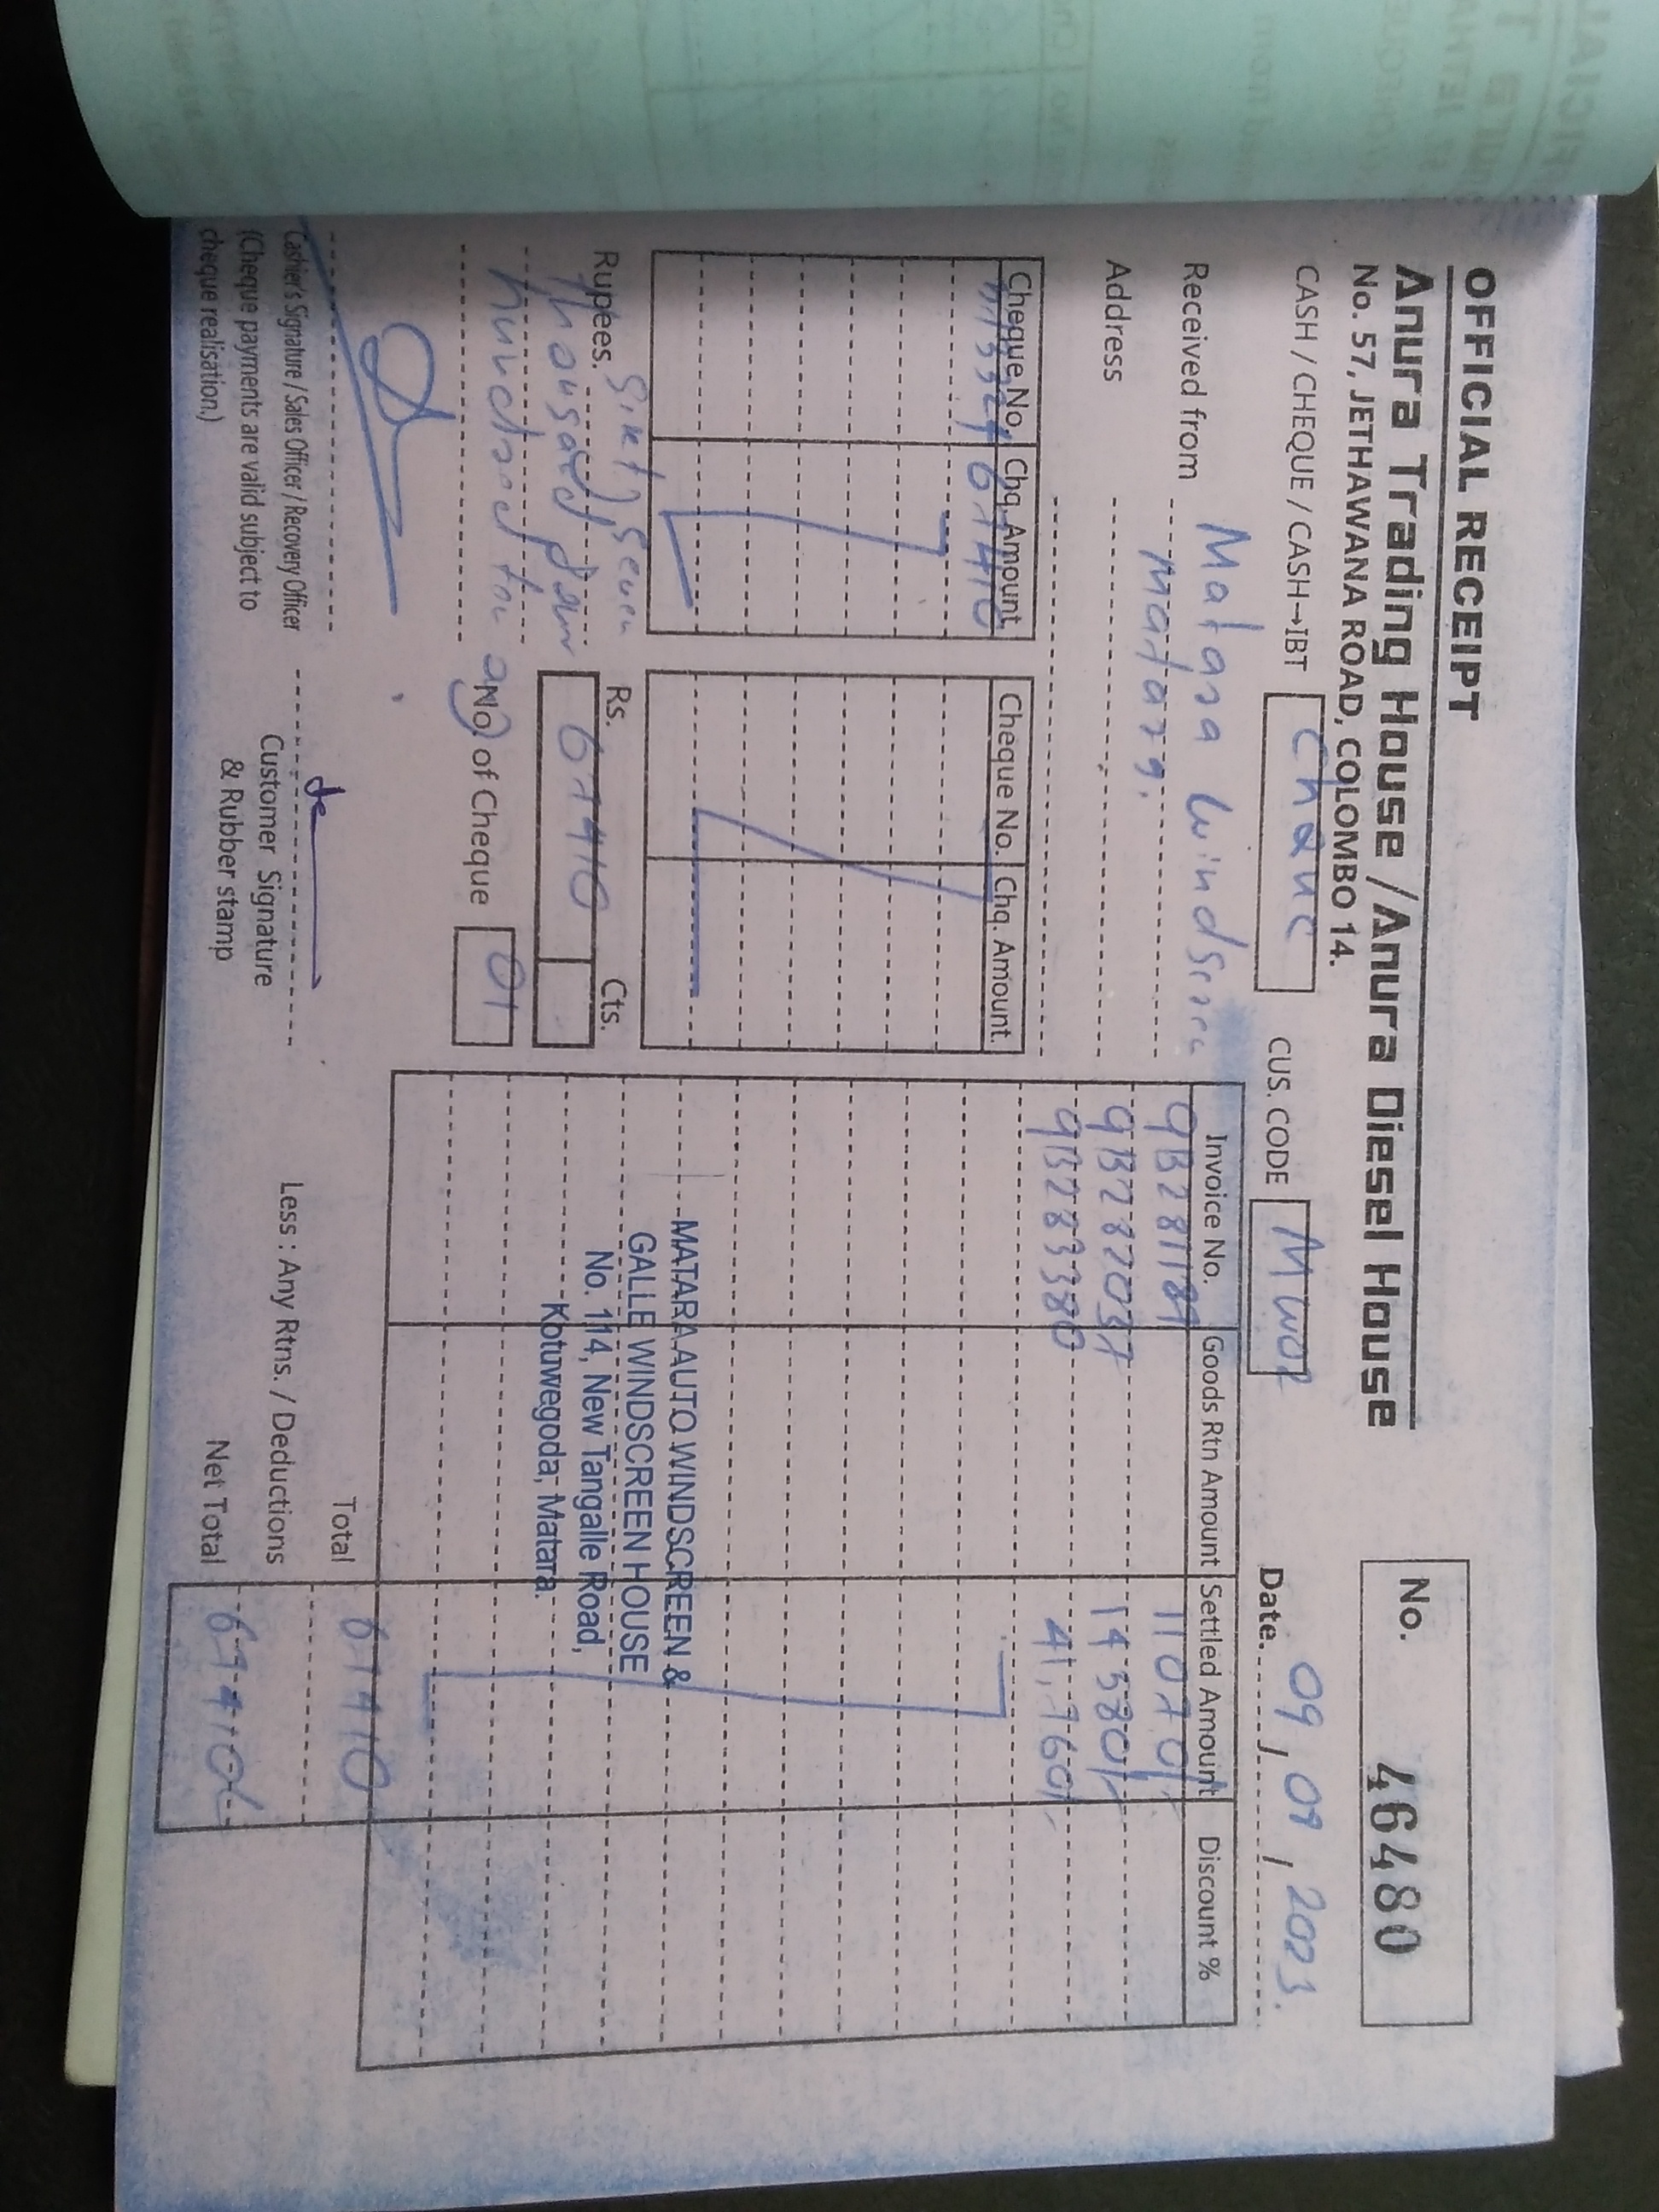 OFFICIAL RECEIPT
Anura Trading House / Anura Diesel House
No. 57, JETHAWANA ROAD, COLOMBO 14.
No. 46480
CASH / CHEQUE / CASH→IBT
CUS. CODE
Date. 09, 09, 2023.
Received from Matara Windscree
Address Matara.
Cheque No. Chq. Amount Cheque No. Chq. Amount.
67410
Invoice No. Goods Rtn Amount Settled Amount Discount %
9B281189 11070/-
9B282037 14580/-
9B283380 41,760/-
MATARA AUTO WINDSCREEN &
GALLE WINDSCREEN HOUSE
No. 114, New Tangalle Road,
Kotuwegoda, Matara.
Rupees. Sixty seven
thousand four
hundred ten
Rs. Cts.
67410
No of Cheque 01
Total 67410
Less : Any Rtns. / Deductions
Net Total 67410/-
Cashier's Signature / Sales Officer / Recovery Officer
(Cheque payments are valid subject to
cheque realisation.)
Customer Signature
& Rubber stamp